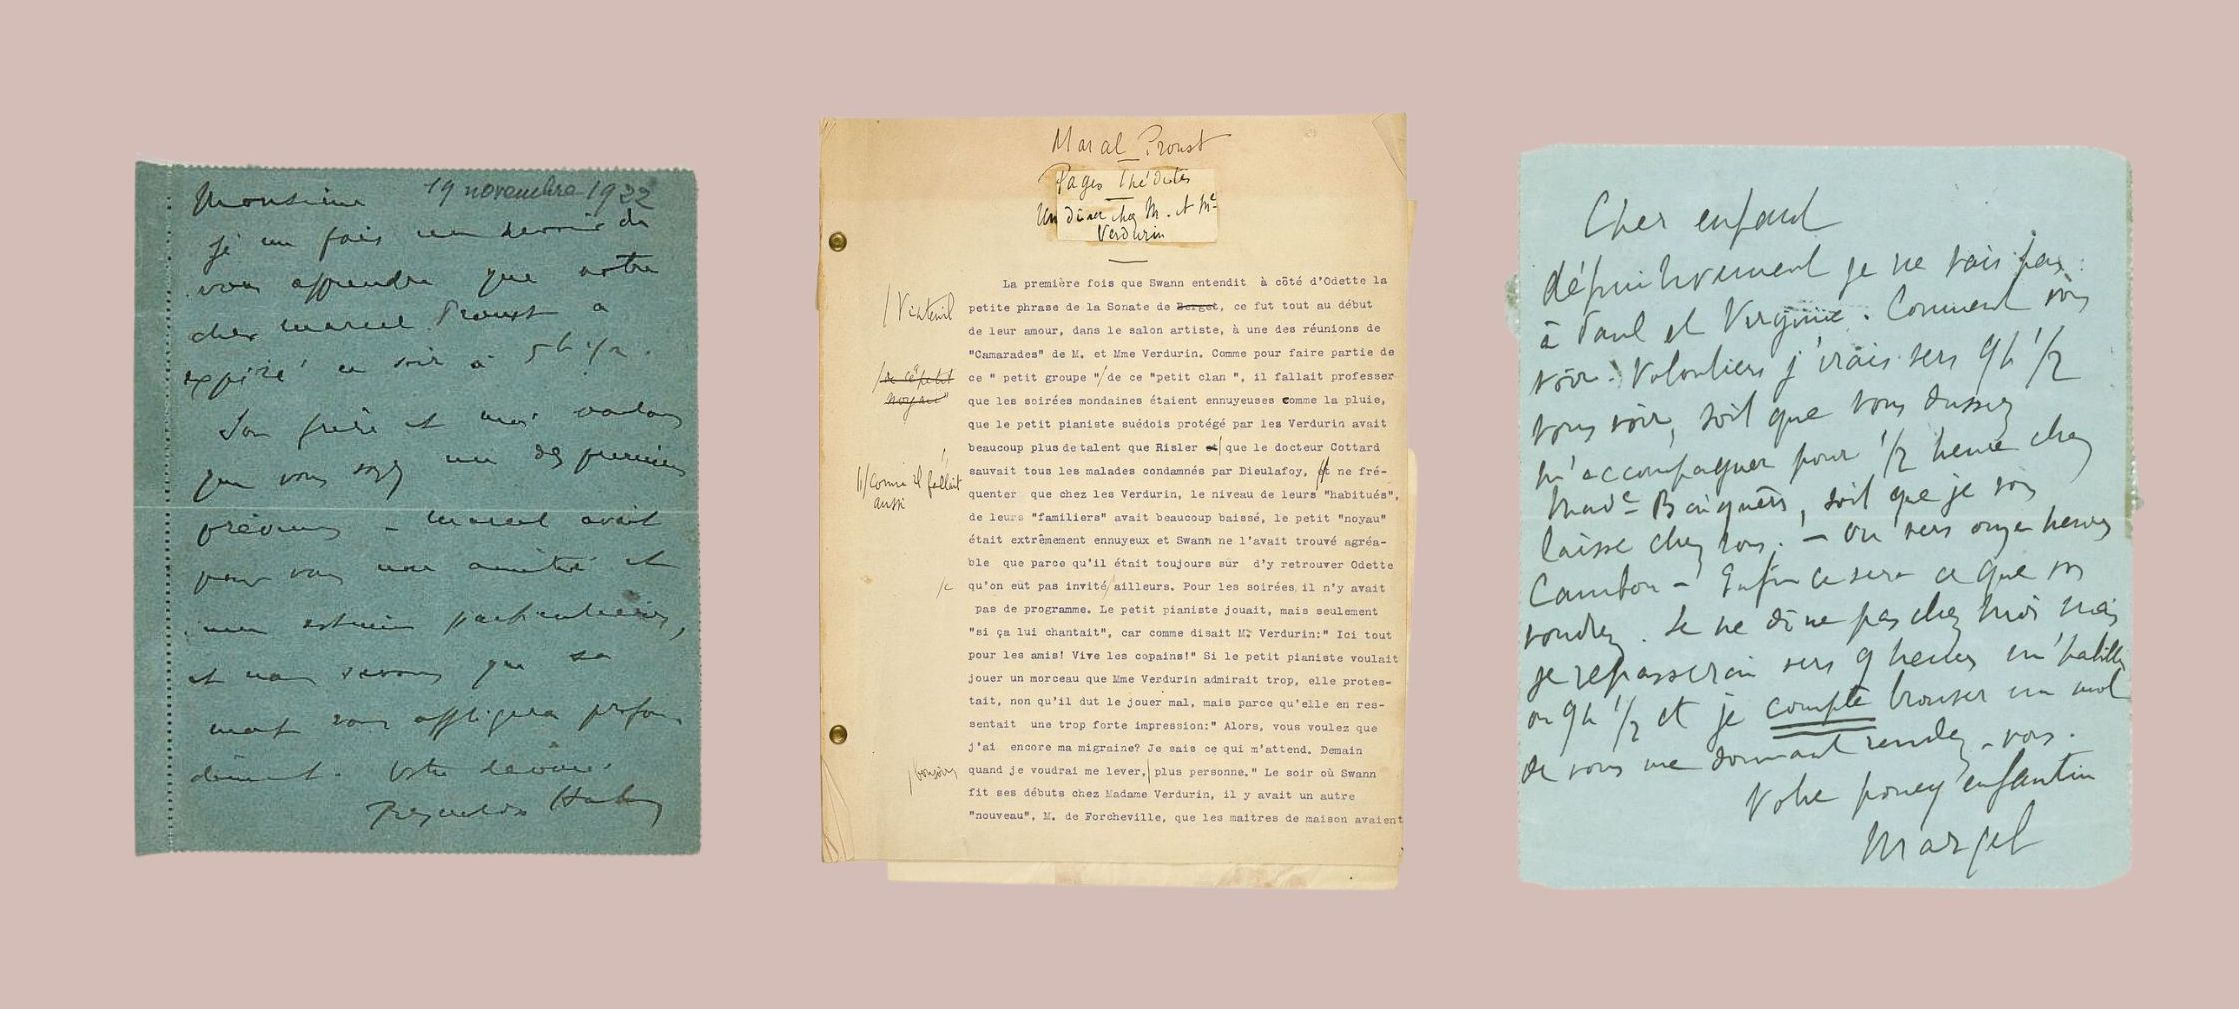 19 novembre 1922
Monsieur
je me fais un devoir de
vous apprendre que notre
cher Marcel Proust a
expiré ce soir à 5 h 1/2.
Son frère et moi voulons
que vous soyez un des premiers
prévenus – Marcel avait
pour vous une amitié et
une estime particulières,
et nous savons que sa
mort vous affligera profon
dément. Votre dévoué.
Reynaldo Hahn
Marcel Proust
Pages Inédites
Un dîner chez M. et Me
Verdurin
La première fois que Swann entendit à côté d'Odette la
/Vinteuil
petite phrase de la Sonate de Berget, ce fut tout au début
de leur amour, dans le salon artiste, à une des réunions de
"Camarades" de M. et Mme Verdurin. Comme pour faire partie de
/de ce "petit
noyau"
ce " petit groupe "/de ce "petit clan ", il fallait professer
que les soirées mondaines étaient ennuyeuses comme la pluie,
que le petit pianiste suédois protégé par les Verdurin avait
beaucoup plus de talent que Risler et/ que le docteur Cottard
sauvait tous les malades condamnés par Dieulafoy, et ne fré-
//comme il fallait
aussi
quenter que chez les Verdurin, le niveau de leurs "habitués",
de leurs "familiers" avait beaucoup baissé, le petit "noyau"
était extrêmement ennuyeux et Swann ne l'avait trouvé agréa-
ble que parce qu'il était toujours sûr d'y retrouver Odette
qu'on eût pas invité/ailleurs. Pour les soirées, il n'y avait
pas de programme. Le petit pianiste jouait, mais seulement
"si ça lui chantait", car comme disait M. Verdurin:" Ici tout
pour les amis! Vive les copains!" Si le petit pianiste voulait
jouer un morceau que Mme Verdurin admirait trop, elle protes-
tait, non qu'il dut le jouer mal, mais parce qu'elle en res-
sentait une trop forte impression:" Alors, vous voulez que
j'ai encore ma migraine? Je sais ce qui m'attend. Demain
/bonsoir,
quand je voudrai me lever,/ plus personne." Le soir où Swann
fit ses débuts chez Madame Verdurin, il y avait un autre
"nouveau", M. de Forcheville, que les maîtres de maison avaient
Cher enfant
définitivement je ne vais pas
à Paul et Virginie. Comment vous
voir. Volontiers j'irais vers 9h 1/2
vous voir, soit que vous dussiez
m'accompagner pour 1/2 heure chez
Made Baignères, soit que je vous
laisse chez vous. – Ou vers onze heures
Cambon – Enfin ce sera ce que vs
voudrez. Je ne dîne pas chez moi mais
je repasserai vers 9 heures m'habiller
ou 9h 1/2 et je compte trouver un mot
de vous me donnant rendez-vous.
Votre poney enfantin
Marcel